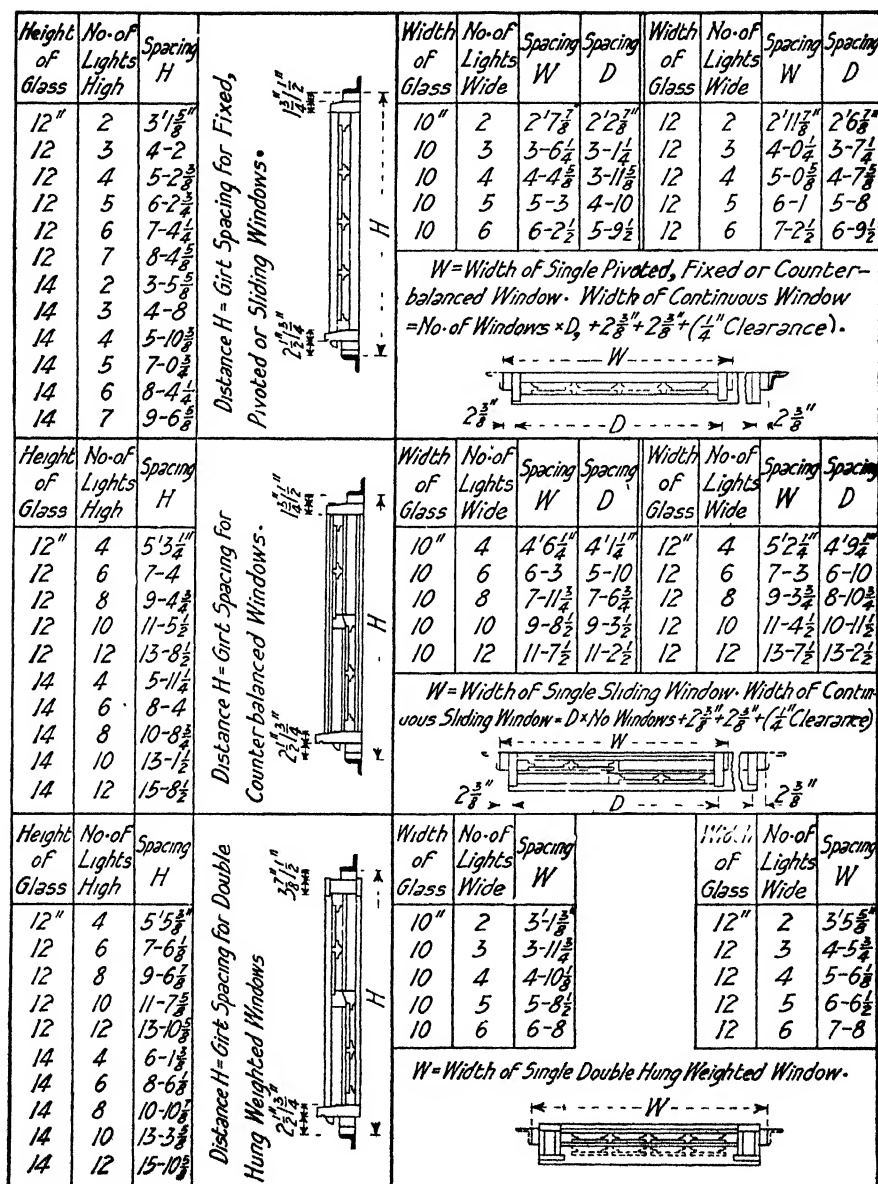 Height of Glass | No. of Lights High | Spacing H
12" | 2 | 3'1 5/8"
12 | 3 | 4-2
12 | 4 | 5-2 3/8
12 | 5 | 6-2 3/4
12 | 6 | 7-4 1/4
12 | 7 | 8-4 5/8
14 | 2 | 3-5 5/8
14 | 3 | 4-8
14 | 4 | 5-10 3/8
14 | 5 | 7-0 3/4
14 | 6 | 8-4 1/4
14 | 7 | 9-6 5/8
Distance H = Girt Spacing for Fixed,
Pivoted or Sliding Windows.
1 3/4" 1/2"
H
2 1/2" 1 3/4"
Width of Glass | No. of Lights Wide | Spacing W | Spacing D | Width of Glass | No. of Lights Wide | Spacing W | Spacing D
10" | 2 | 2'7 7/8" | 2'2 7/8" | 12 | 2 | 2'11 7/8" | 2'6 7/8"
10 | 3 | 3-6 1/4 | 3-1 1/4 | 12 | 3 | 4-0 1/4 | 3-7 1/4
10 | 4 | 4-4 5/8 | 3-11 5/8 | 12 | 4 | 5-0 5/8 | 4-7 5/8
10 | 5 | 5-3 | 4-10 | 12 | 5 | 6-1 | 5-8
10 | 6 | 6-2 1/2 | 5-9 1/2 | 12 | 6 | 7-2 1/2 | 6-9 1/2
W = Width of Single Pivoted, Fixed or Counter-
balanced Window. Width of Continuous Window
= No. of Windows × D, + 2 3/8" + 2 3/8" + (1/4" Clearance).
W
2 3/8" D 2 3/8"
Height of Glass | No. of Lights High | Spacing H
12" | 4 | 5'3 1/4"
12 | 6 | 7-4
12 | 8 | 9-4 3/4
12 | 10 | 11-5 1/2
12 | 12 | 13-8 1/2
14 | 4 | 5-11 1/4
14 | 6 | 8-4
14 | 8 | 10-8 3/4
14 | 10 | 13-1 1/2
14 | 12 | 15-8 1/2
Distance H = Girt Spacing for
Counterbalanced Windows.
1 3/4" 1/2"
H
2 1/2" 1 3/4"
Width of Glass | No. of Lights Wide | Spacing W | Spacing D | Width of Glass | No. of Lights Wide | Spacing W | Spacing D
10" | 4 | 4'6 1/4" | 4'1 1/4" | 12" | 4 | 5'2 1/4" | 4'9 1/4"
10 | 6 | 6-3 | 5-10 | 12 | 6 | 7-3 | 6-10
10 | 8 | 7-11 3/4 | 7-6 3/4 | 12 | 8 | 9-3 3/4 | 8-10 3/4
10 | 10 | 9-8 1/2 | 9-3 1/2 | 12 | 10 | 11-4 1/2 | 10-11 1/2
10 | 12 | 11-7 1/2 | 11-2 1/2 | 12 | 12 | 13-7 1/2 | 13-2 1/2
W = Width of Single Sliding Window. Width of Contin-
uous Sliding Window = D × No Windows + 2 3/8" + 2 3/8" + (1/4" Clearance)
W
2 3/8" D 2 3/8"
Height of Glass | No. of Lights High | Spacing H
12" | 4 | 5'5 3/8"
12 | 6 | 7-6 1/8
12 | 8 | 9-6 7/8
12 | 10 | 11-7 5/8
12 | 12 | 13-10 5/8
14 | 4 | 6-1 3/8
14 | 6 | 8-6 1/8
14 | 8 | 10-10 7/8
14 | 10 | 13-3 5/8
14 | 12 | 15-10 5/8
Distance H = Girt Spacing for Double
Hung Weighted Windows
7/8" 1/2"
H
2 1/2" 1 3/4"
Width of Glass | No. of Lights Wide | Spacing W
10" | 2 | 3'-1 3/8"
10 | 3 | 3-11 3/4
10 | 4 | 4-10 1/8
10 | 5 | 5-8 1/2
10 | 6 | 6-8
Width of Glass | No. of Lights Wide | Spacing W
12" | 2 | 3'5 5/8"
12 | 3 | 4-5 3/4
12 | 4 | 5-6 1/8
12 | 5 | 6-6 1/2
12 | 6 | 7-8
W = Width of Single Double Hung Weighted Window.
W